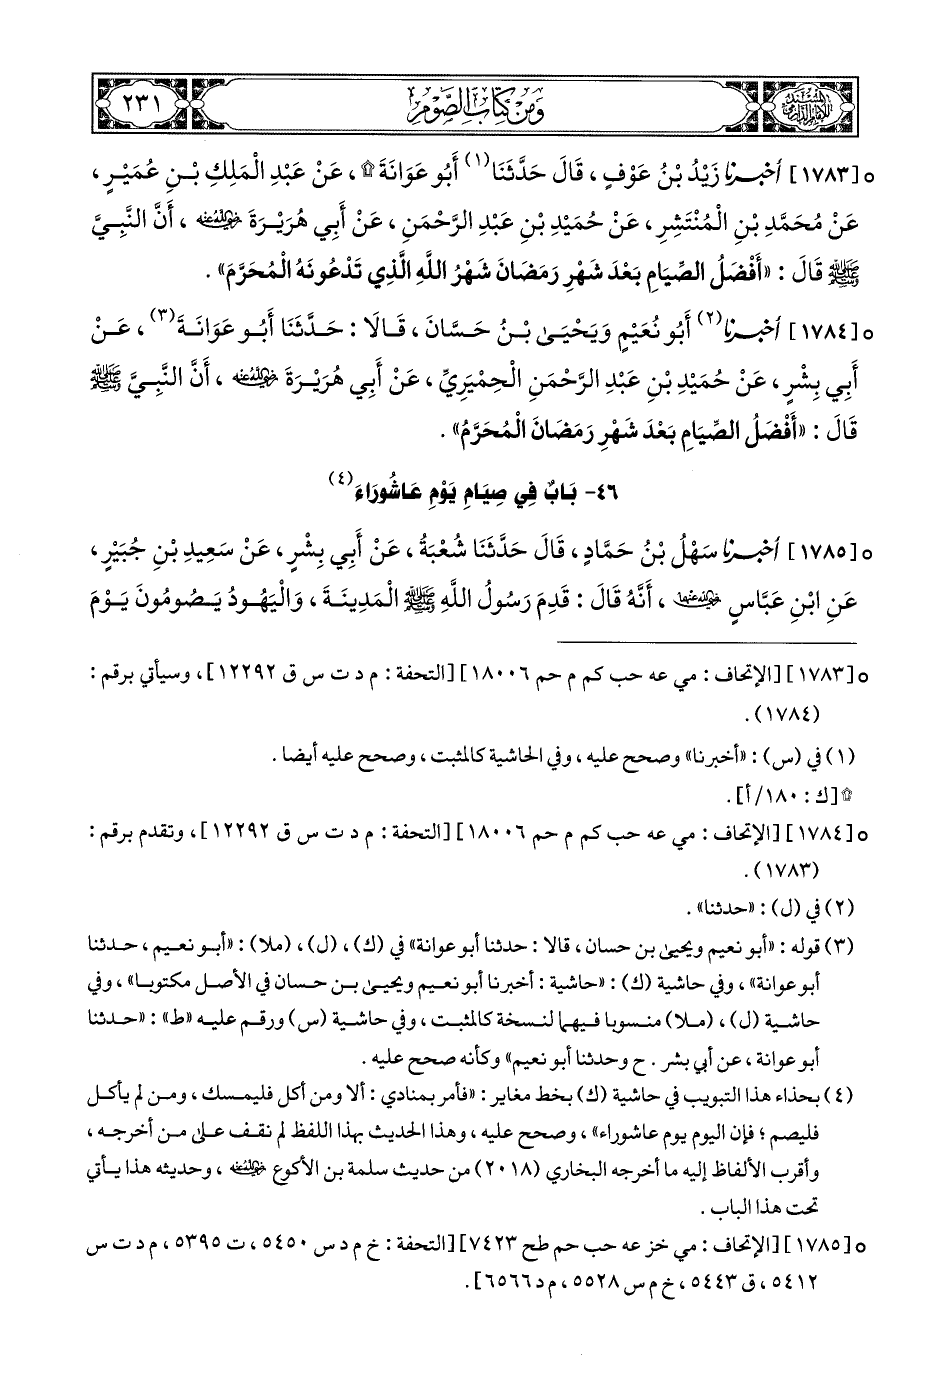 المسند للإمام الدارمي
ومن كتاب الصوم
٢٣١
٥ [١٧٨٣] أخبرنا زَيْدُ بْنُ عَوْفٍ ، قَالَ حَدَّثَنَا(١) أَبُو عَوَانَةَ ۩ ، عَنْ عَبْدِ الْمَلِكِ بْنِ عُمَيْرٍ ،
عَنْ مُحَمَّدِ بْنِ الْمُنْتَشِرِ ، عَنْ حُمَيْدِ بْنِ عَبْدِ الرَّحْمَنِ ، عَنْ أَبِي هُرَيْرَةَ رضي الله عنه ، أَنَّ النَّبِيَّ
ﷺ قَالَ : «أَفْضَلُ الصِّيَامِ بَعْدَ شَهْرِ رَمَضَانَ شَهْرُ اللَّهِ الَّذِي تَدْعُونَهُ الْمُحَرَّمَ» .
٥ [١٧٨٤] أخبرنا(٢) أَبُو نُعَيْمٍ وَيَحْيَىٰ بْنُ حَسَّانَ ، قَالَا : حَدَّثَنَا أَبُو عَوَانَةَ(٣) ، عَنْ
أَبِي بِشْرٍ ، عَنْ حُمَيْدِ بْنِ عَبْدِ الرَّحْمَنِ الْحِمْيَرِيِّ ، عَنْ أَبِي هُرَيْرَةَ رضي الله عنه ، أَنَّ النَّبِيَّ ﷺ
قَالَ : «أَفْضَلُ الصِّيَامِ بَعْدَ شَهْرِ رَمَضَانَ الْمُحَرَّمُ» .
٤٦- بَابٌ فِي صِيَامِ يَوْمِ عَاشُورَاءَ(٤)
٥ [١٧٨٥] أخبرنا سَهْلُ بْنُ حَمَّادٍ ، قَالَ حَدَّثَنَا شُعْبَةُ ، عَنْ أَبِي بِشْرٍ ، عَنْ سَعِيدِ بْنِ جُبَيْرٍ ،
عَنِ ابْنِ عَبَّاسٍ رضي الله عنهما ، أَنَّهُ قَالَ : قَدِمَ رَسُولُ اللَّهِ ﷺ الْمَدِينَةَ ، وَالْيَهُودُ يَصُومُونَ يَوْمَ
٥ [١٧٨٣] [الإتحاف : مي عه حب كم م حم ١٨٠٠٦] [التحفة : م د ت س ق ١٢٢٩٢] ، وسيأتي برقم :
(١٧٨٤) .
(١) في (س) : «أخبرنا» وصحح عليه ، وفي الحاشية كالمثبت ، وصحح عليه أيضا .
۩ [ك : ١٨٠/أ] .
٥ [١٧٨٤] [الإتحاف : مي عه حب كم م حم ١٨٠٠٦] [التحفة : م د ت س ق ١٢٢٩٢] ، وتقدم برقم :
(١٧٨٣) .
(٢) في (ل) : «حدثنا» .
(٣) قوله : «أبو نعيم ويحيىٰ بن حسان ، قالا : حدثنا أبو عوانة» في (ك) ، (ل) ، (ملا) : «أبو نعيم ، حدثنا
أبو عوانة» ، وفي حاشية (ك) : «حاشية : أخبرنا أبو نعيم ويحيىٰ بن حسان في الأصل مكتوبا» ، وفي
حاشية (ل) ، (ملا) منسوبا فيهما لنسخة كالمثبت ، وفي حاشية (س) ورقم عليه «ط» : «حدثنا
أبو عوانة ، عن أبي بشر . ح وحدثنا أبو نعيم» وكأنه صحح عليه .
(٤) بحذاء هذا التبويب في حاشية (ك) بخط مغاير : «فأمر بمنادي : ألا ومن أكل فليمسك ، ومن لم يأكل
فليصم ؛ فإن اليوم يوم عاشوراء» ، وصحح عليه ، وهذا الحديث بهذا اللفظ لم نقف علىٰ من أخرجه ،
وأقرب الألفاظ إليه ما أخرجه البخاري (٢٠١٨) من حديث سلمة بن الأكوع رضي الله عنه ، وحديثه هذا يأتي
تحت هذا الباب .
٥ [١٧٨٥] [الإتحاف : مي خز عه حب حم طح ٧٤٢٣] [التحفة : خ م د س ٥٤٥٠ ، ت ٥٣٩٥ ، م د ت س
٥٤١٢ ، ق ٥٤٤٣ ، خ م س ٥٥٢٨ ، م د ٦٥٦٦] .